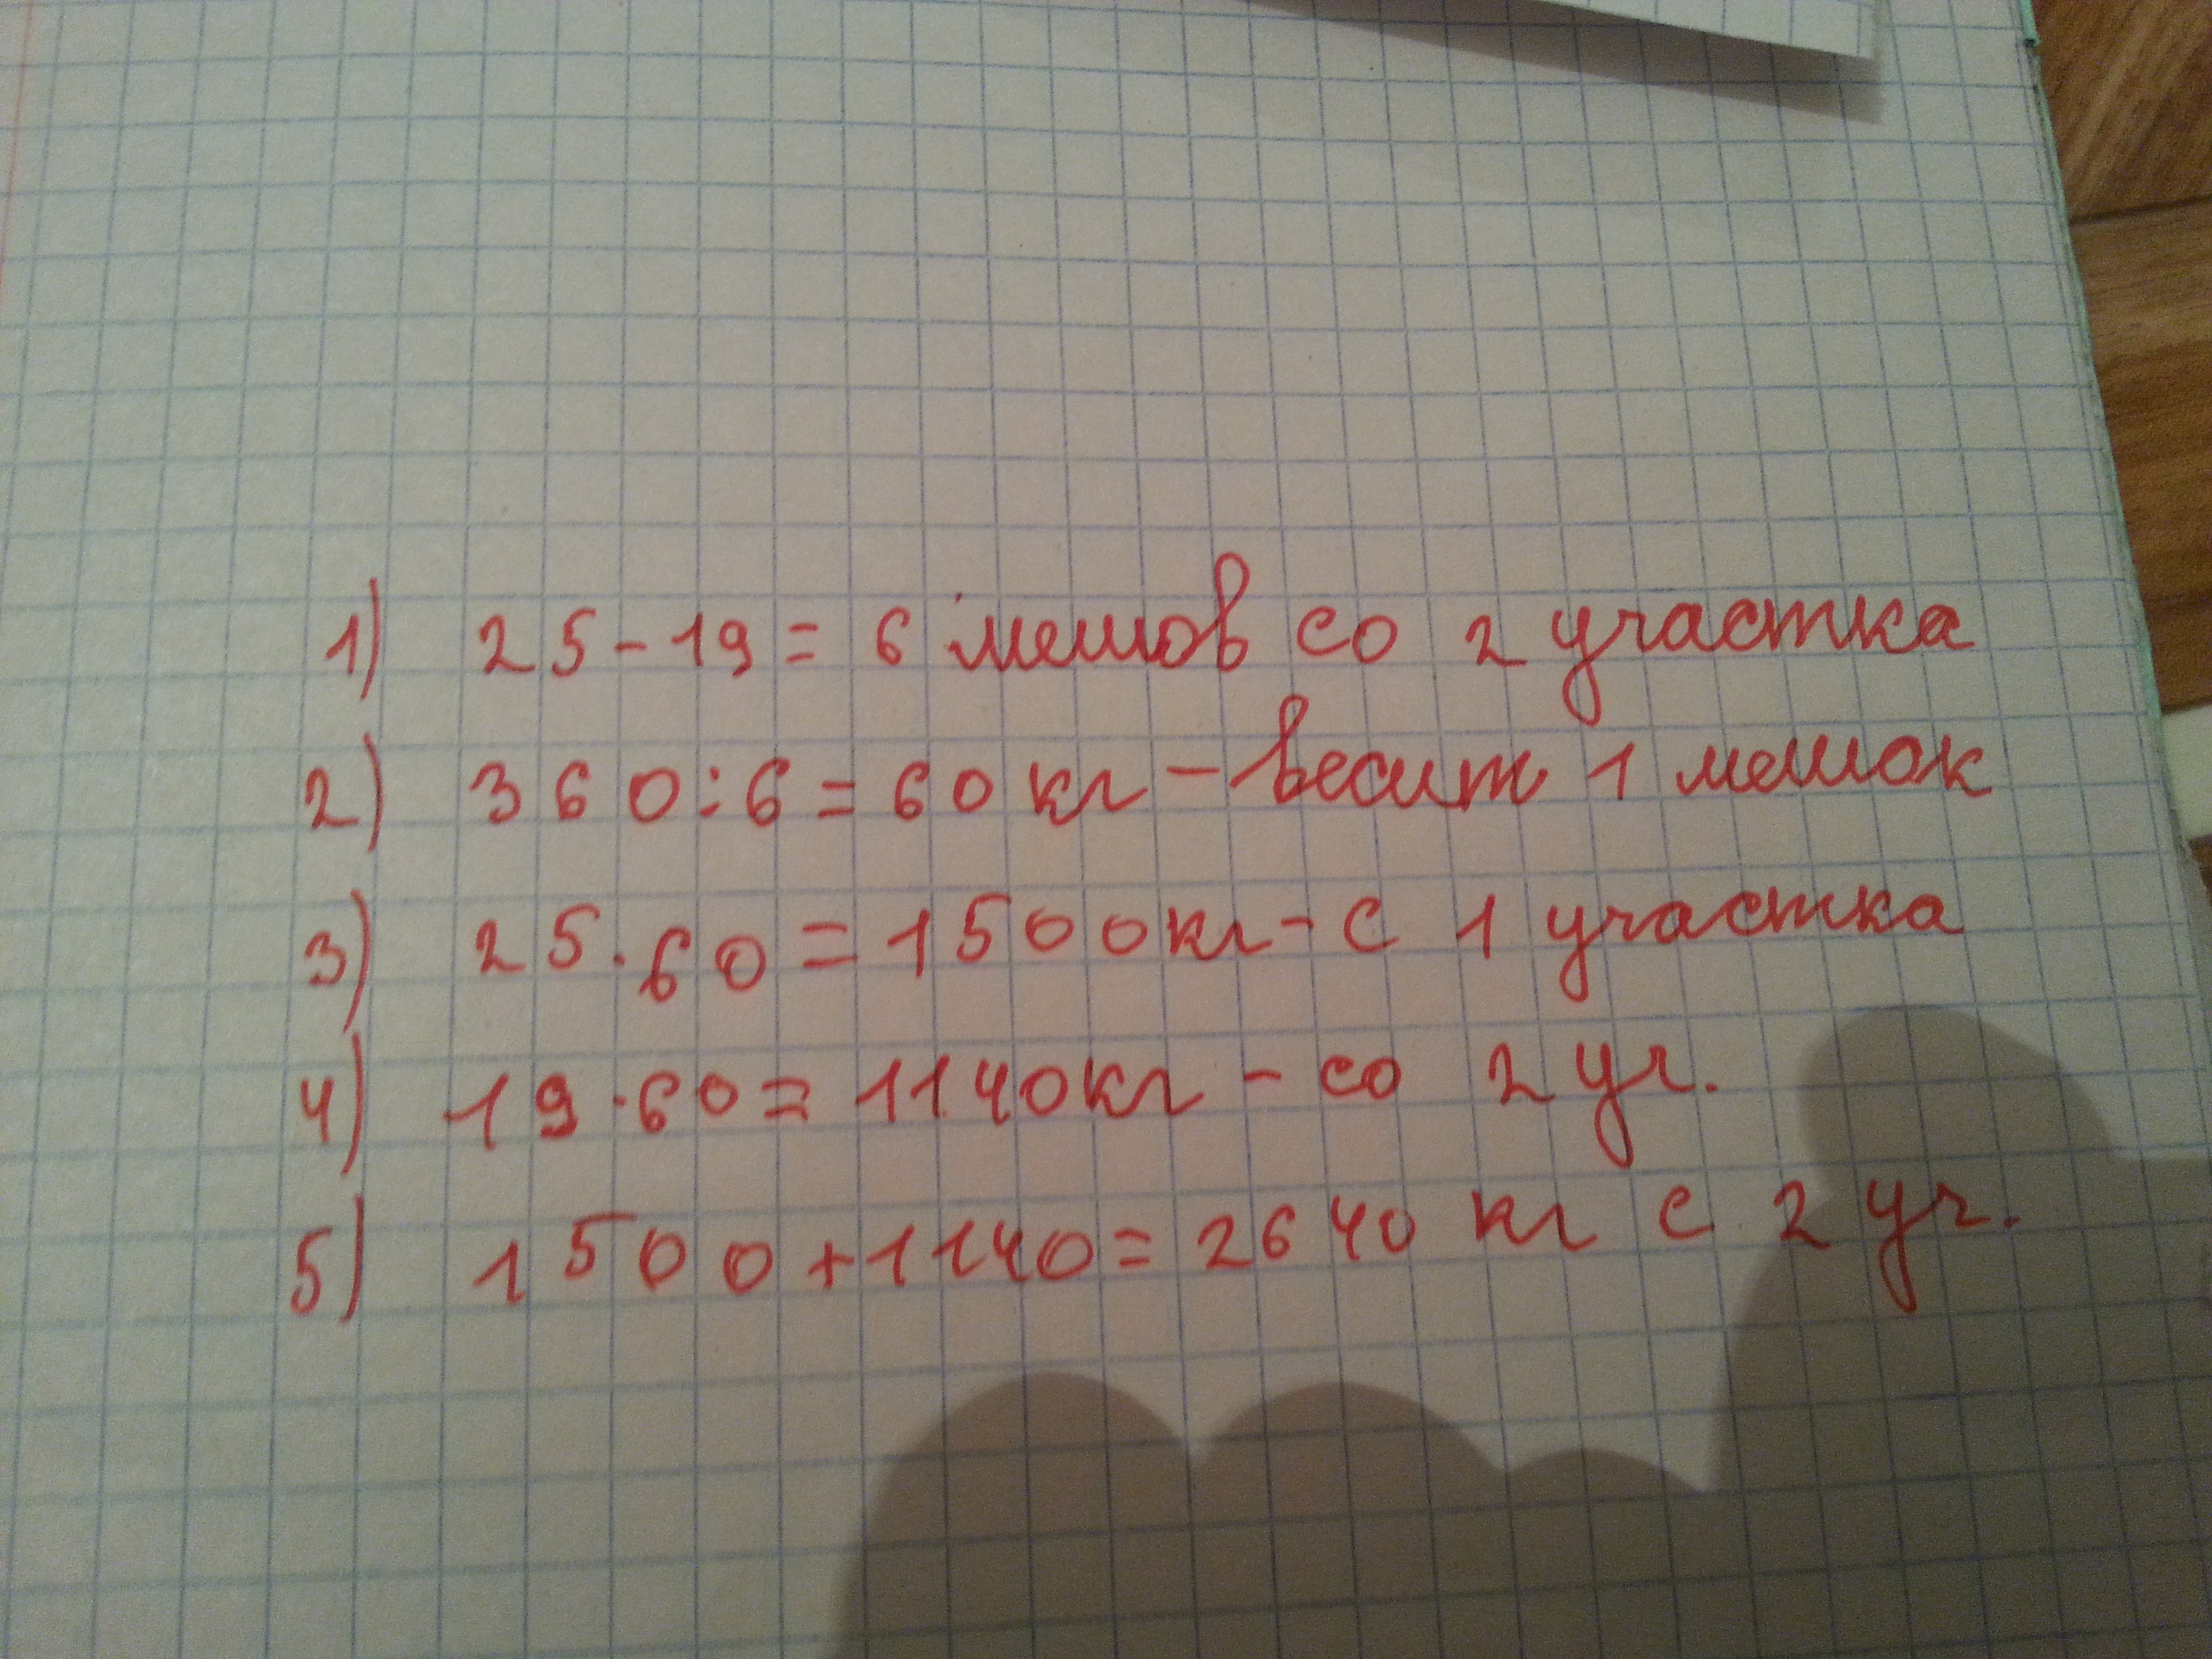 1) 25-19=6 мешов со 2 участка
2) 360:6=60 кг - весит 1 мешок
3) 25·60=1500 кг - с 1 участка
4) 19·60=1140 кг - со 2 уч.
5) 1500+1140=2640 кг с 2 уч.